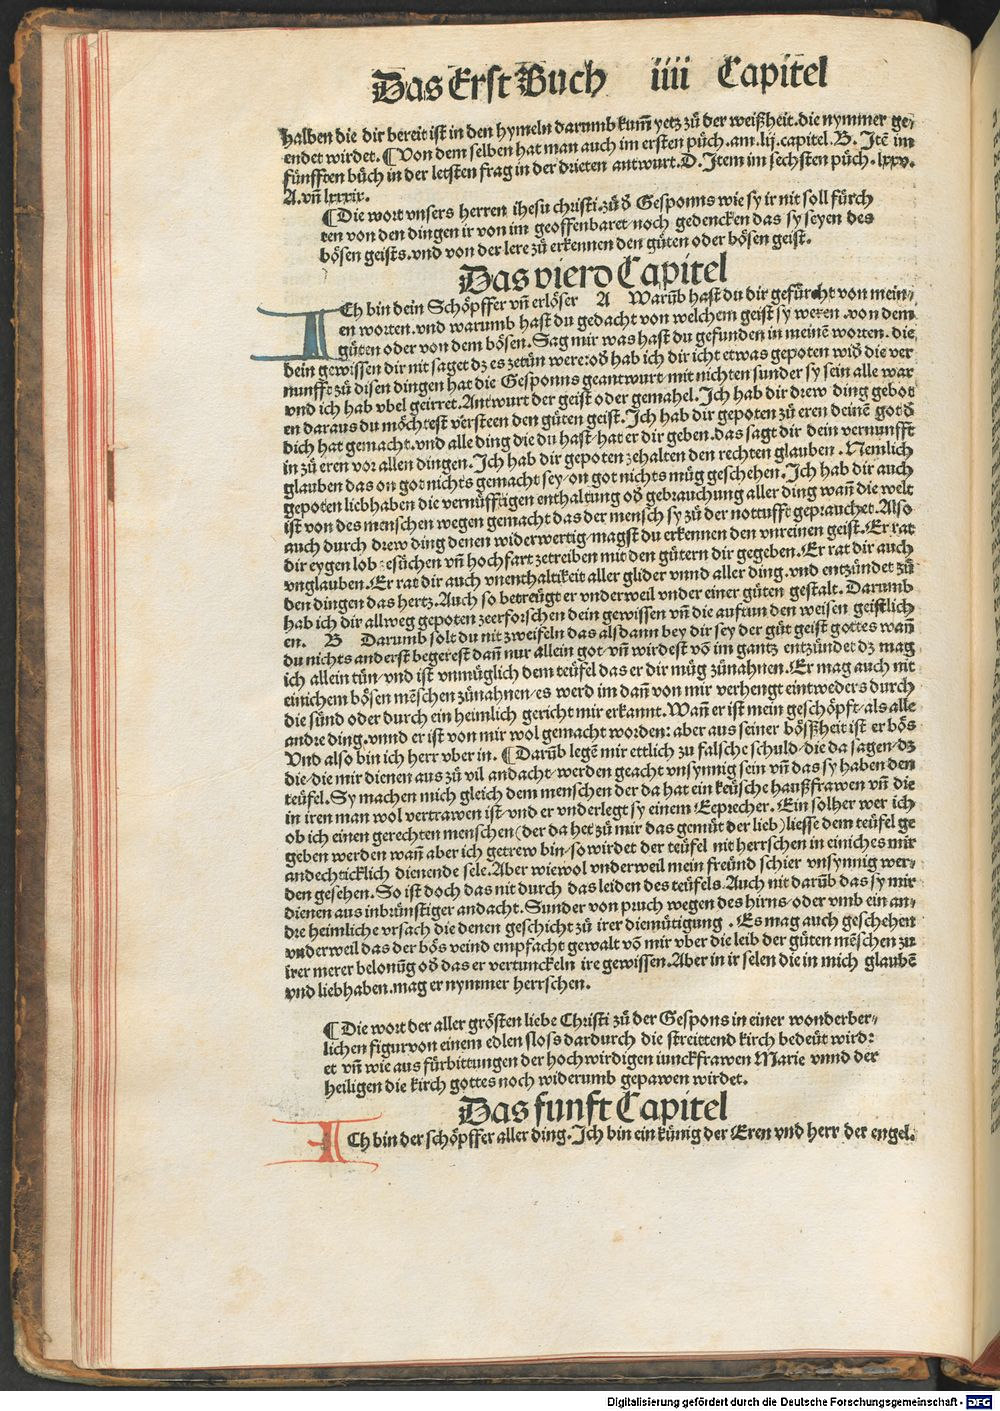 Das Erst Buch iiii Capitel
halben die dir bereit ist in den hymeln darumb kum̄ yetz zů der weißheit. die nymmer ge⸗
endet wirdet. ¶ Von dem selben hat man auch im ersten půch. am. lij. capitel. B. Itē im
fünfften bůch in der letsten frag in der drieten antwurt. D. Item im sechsten půch. lxxv.
A. vn̄ lxxxix.
¶ Die wort vnsers herren ihesu christi. zů d̄ Gesponns wie sy ir nit soll fürch
ten von den dingen ir von im geoffenbaret noch gedencken das sy seyen des
bösen geists. vnd von der lere zů erkennen den gůten oder bösen geist.
Das vierd Capitel
ICh bin dein Schöpffer vn̄ erlöser A Warūb hast du dir gefürcht von mein⸗
en worten. vnd warumb hast du gedacht von welchem geist sy weren. von dem
gůten oder von dem bösen. Sag mir was hast du gefunden in meinē worten. die
dein gewissen dir nit saget dz es zetůn were: od̄ hab ich dir icht etwas gepoten wid̄ die ver
nunfft zů disen dingen hat die Gesponns geantwurt/ mit nichten sunder sy sein alle war
vnd ich hab vbel geirret. Antwurt der geist oder gemahel. Ich hab dir drew ding gebot
en daraus du möchtest versteen den gůten geist. Ich hab dir gepoten zů eren deinē got d̄
dich hat gemacht. vnd alle ding die du hast/ hat er dir geben. das sagt dir dein vernunfft
in zů eren vor allen dingen. Ich hab dir gepoten zehalten den rechten glauben. Nemlich
glauben das on got nichts gemacht sey/ on got nichts můg geschehen. Ich hab dir auch
gepoten liebhaben die vernüfftigen enthaltung od̄ gebrauchung aller ding wan̄ die welt
ist von des menschen wegen gemacht das der mensch sy zů der nottufft geprauchet. Also
auch durch drew ding denen widerwertig/ magst du erkennen den vnreinen geist. Er rat
dir eygen lob zesůchen vn̄ hochfart zetreiben mit den gůtern dir gegeben. Er rat dir auch
vnglauben. Er rat dir auch vnenthaltikeit aller glider vnnd aller ding. vnd entzündet zů
den dingen das hertz. Auch so betreügt er vnderweil vnder einer gůten gestalt. Darumb
hab ich dir allweg gepoten zeerforschen dein gewissen vn̄ die auftun den weisen geistlich
en. B Darumb solt du nit zweifeln das alsdann bey dir sey der gůt geist gottes wan̄
du nichts anderst begerest dan̄ nur allein got/ vn̄ wirdest vō im gantz entzündet dz mag
ich allein tůn/ vnd ist vnmüglich dem teüfel das er dir müg zůnahnen. Er mag auch nit
einichem bösen mēschen zůnahnen/ es werd im dan̄ von mir verhengt eintweders durch
die sünd oder durch ein heimlich gericht mir erkannt. Wan̄ er ist mein geschöpft/ als alle
andre ding. vnnd er ist von mir wol gemacht worden: aber aus seiner bößheit ist er bös
Vnd also bin ich herr vber in. ¶ Darūb legē mir ettlich zu falsche schuld/ die da sagen/ dz
die/ die mir dienen aus zů vil andacht/ werden geacht vnsynnig sein vn̄ das sy haben den
teüfel. Sy machen mich gleich dem menschen der da hat ein keüsche haußfrawen vn̄ die
in iren man wol vertrawen ist/ vnd er vnderlegt sy einem Eeprecher. Ein solher wer ich
ob ich einen gerechten menschen (der da het zů mir das gemüt der lieb) liesse dem teüfel ge
geben werden wan̄ aber ich getrew bin/ so wirdet der teüfel nit herrschen in einiches mir
andechticklich dienende sele. Aber wiewol vnderweil mein freünd schier vnsynnig wer⸗
den gesehen. So ist doch das nit durch das leiden des teüfels. Auch nit darūb das sy mir
dienen aus inbrünstiger andacht. Sunder von pruch wegen des hirns/ oder vmb ein an⸗
dre heimliche vrsach die denen geschicht zů irer diemütigung. Es mag auch geschehen
vnderweil das der bös veind empfacht gewalt vō mir vber die leib der gůten mēschen zu
irer merer belonūg od̄ das er vertunckeln ire gewissen. Aber in ir selen die in mich glaubē
vnd liebhaben. mag er nymmer herrschen.
¶ Die wort der aller grösten liebe Christi zů der Gespons in einer wonderber⸗
lichen figur von einem edlen sloss dardurch die streittend kirch bedeüt wird:
et vn̄ wie aus fürbittungen der hochwirdigen iunckfrawen Marie vnnd der
heiligen die kirch gottes noch widerumb gepawen wirdet.
Das funft Capitel
ICh bin der schöpffer aller ding. Ich bin ein künig der Eren vnd herr der engel.
Digitalisierung gefördert durch die Deutsche Forschungsgemeinschaft - DFG